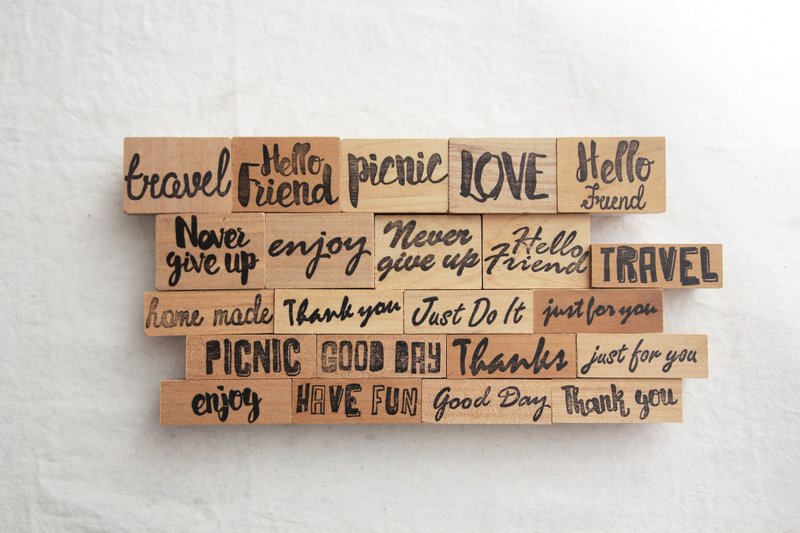 travel Hello Friend picnic LOVE Hello Friend
Never give up enjoy Never give up Hello Friend TRAVEL
home made Thank you Just Do It just for you
PICNIC GOOD DAY Thanks just for you
enjoy HAVE FUN Good Day Thank you